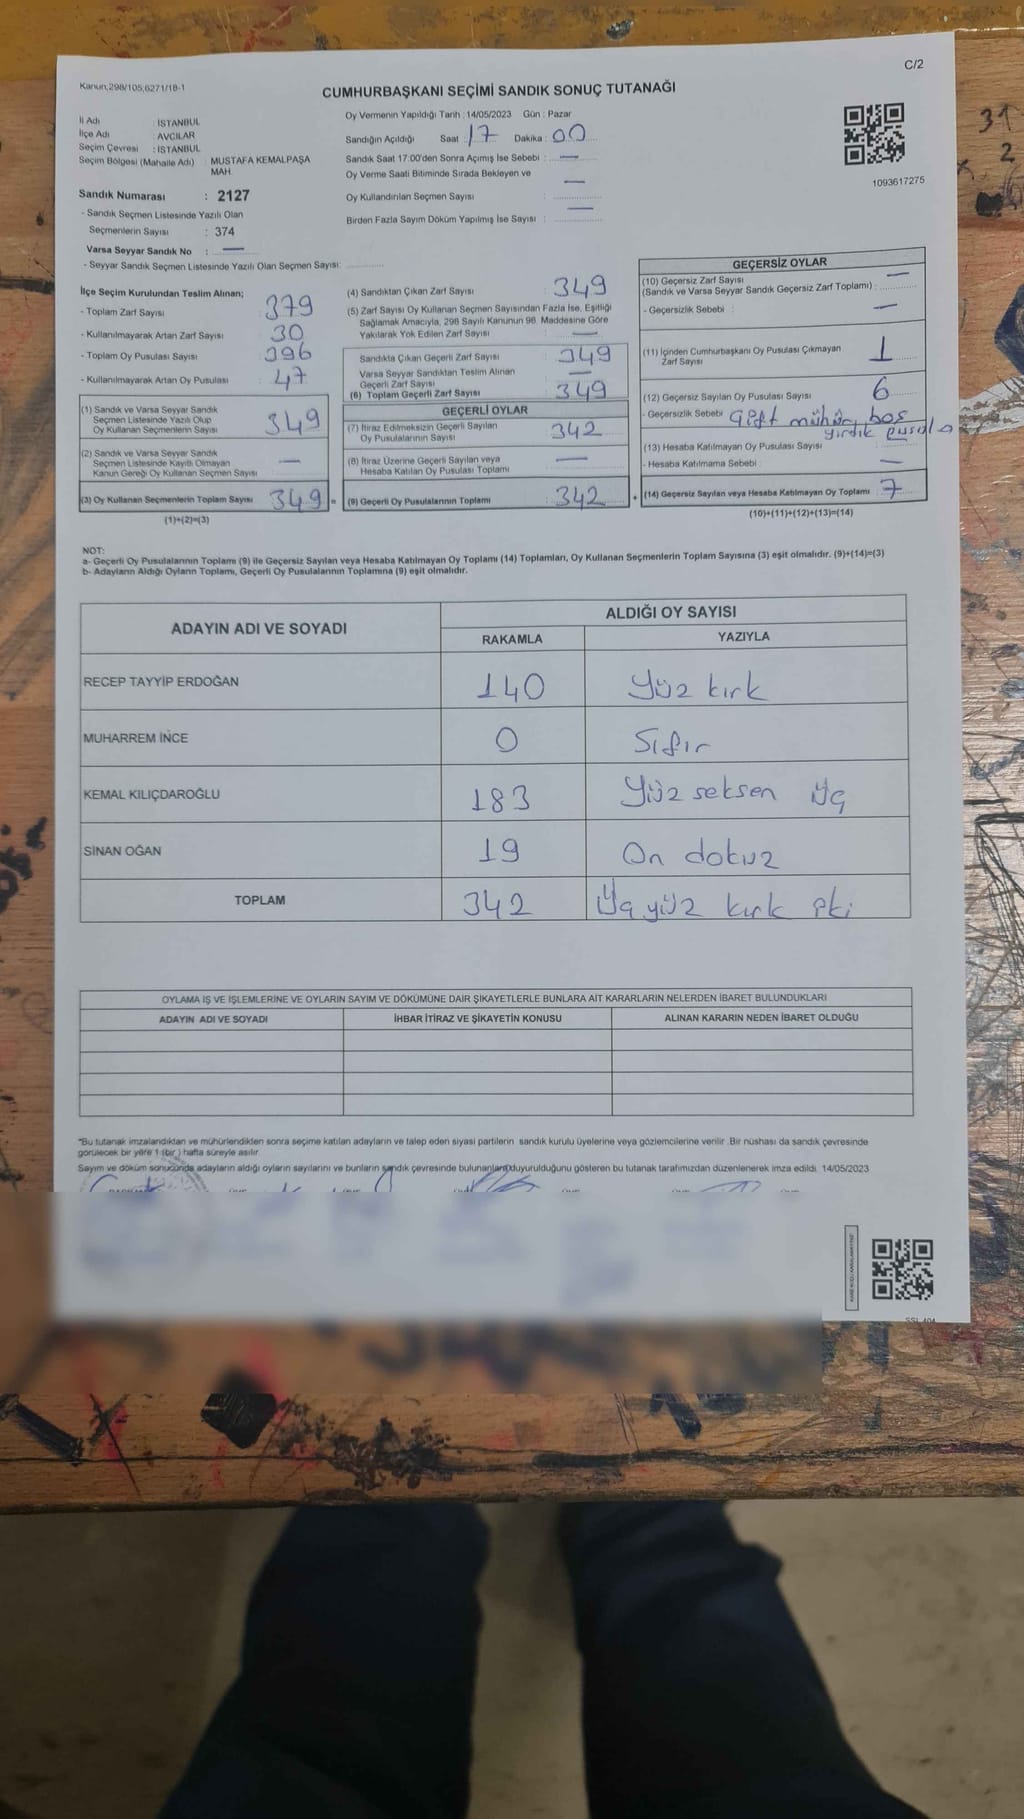 C/2
Kanun,298/105,6271/18-1
CUMHURBAŞKANI SEÇİMİ SANDIK SONUÇ TUTANAĞI
İl Adı : İSTANBUL
İlçe Adı : AVCILAR
Seçim Çevresi : İSTANBUL
Seçim Bölgesi (Mahalle Adı) : MUSTAFA KEMALPAŞA
MAH.
Sandık Numarası : 2127
- Sandık Seçmen Listesinde Yazılı Olan
Seçmenlerin Sayısı : 374
Varsa Seyyar Sandık No : —
- Seyyar Sandık Seçmen Listesinde Yazılı Olan Seçmen Sayısı: ............
Oy Vermenin Yapıldığı Tarih : 14/05/2023 Gün : Pazar
Sandığın Açıldığı Saat : 17 Dakika : 00
Sandık Saat 17.00'den Sonra Açımış İse Sebebi : —
Oy Verme Saati Bitiminde Sırada Bekleyen ve
Oy Kullandırılan Seçmen Sayısı : —
Birden Fazla Sayım Döküm Yapılmış İse Sayısı : —
1093617275
31
2
İlçe Seçim Kurulundan Teslim Alınan;
- Toplam Zarf Sayısı : 379
- Kullanılmayarak Artan Zarf Sayısı : 30
- Toplam Oy Pusulası Sayısı : 396
- Kullanılmayarak Artan Oy Pusulası : 47
(1) Sandık ve Varsa Seyyar Sandık
Seçmen Listesinde Yazılı Olup
Oy Kullanan Seçmenlerin Sayısı : 349
(2) Sandık ve Varsa Seyyar Sandık
Seçmen Listesinde Kayıtlı Olmayan
Kanun Gereği Oy Kullanan Seçmen Sayısı : —
(3) Oy Kullanan Seçmenlerin Toplam Sayısı : 349 =
(1)+(2)=(3)
(4) Sandıktan Çıkan Zarf Sayısı : 349
(5) Zarf Sayısı Oy Kullanan Seçmen Sayısından Fazla İse, Eşitliği
Sağlamak Amacıyla, 298 Sayılı Kanunun 98. Maddesine Göre
Yakılarak Yok Edilen Zarf Sayısı : —
Sandıkta Çıkan Geçerli Zarf Sayısı : 349
Varsa Seyyar Sandıktan Teslim Alınan
Geçerli Zarf Sayısı : —
(6) Toplam Geçerli Zarf Sayısı : 349
GEÇERLİ OYLAR
(7) İtiraz Edilmeksizin Geçerli Sayılan
Oy Pusulalarının Sayısı : 342
(8) İtiraz Üzerine Geçerli Sayılan veya
Hesaba Katılan Oy Pusulası Toplamı : —
(9) Geçerli Oy Pusulalarının Toplamı : 342 +
GEÇERSİZ OYLAR
(10) Geçersiz Zarf Sayısı
(Sandık ve Varsa Seyyar Sandık Geçersiz Zarf Toplamı) : —
- Geçersizlik Sebebi : —
(11) İçinden Cumhurbaşkanı Oy Pusulası Çıkmayan
Zarf Sayısı : 1
(12) Geçersiz Sayılan Oy Pusulası Sayısı : 6
- Geçersizlik Sebebi : Çift mühür, boş
yırtık pusula
(13) Hesaba Katılmayan Oy Pusulası Sayısı :
- Hesaba Katılmama Sebebi : —
(14) Geçersiz Sayılan veya Hesaba Katılmayan Oy Toplamı : 7
(10)+(11)+(12)+(13)=(14)
NOT:
a- Geçerli Oy Pusulalarının Toplamı (9) ile Geçersiz Sayılan veya Hesaba Katılmayan Oy Toplamı (14) Toplamları, Oy Kullanan Seçmenlerin Toplam Sayısına (3) eşit olmalıdır. (9)+(14)=(3)
b- Adayların Aldığı Oyların Toplamı, Geçerli Oy Pusulalarının Toplamına (9) eşit olmalıdır.
ADAYIN ADI VE SOYADI
ALDIĞI OY SAYISI
RAKAMLA YAZIYLA
RECEP TAYYİP ERDOĞAN 140 Yüz kırk
MUHARREM İNCE 0 Sıfır
KEMAL KILIÇDAROĞLU 183 Yüz seksen üç
SİNAN OĞAN 19 On dokuz
TOPLAM 342 Üç yüz kırk iki
OYLAMA İŞ VE İŞLEMLERİNE VE OYLARIN SAYIM VE DÖKÜMÜNE DAİR ŞİKAYETLERLE BUNLARA AİT KARARLARIN NELERDEN İBARET BULUNDUKLARI
ADAYIN ADI VE SOYADI İHBAR İTİRAZ VE ŞİKAYETİN KONUSU ALINAN KARARIN NEDEN İBARET OLDUĞU
*Bu tutanak imzalandıktan ve mühürlendikten sonra seçime katılan adayların ve talep eden siyasi partilerin sandık kurulu üyelerine veya gözlemcilerine verilir .Bir nüshası da sandık çevresinde
görülecek bir yere 1 (bir ) hafta süreyle asılır.
Sayım ve döküm sonucunda adayların aldığı oyların sayılarını ve bunların sandık çevresinde bulunanlara duyurulduğunu gösteren bu tutanak tarafımızdan düzenlenerek imza edildi. 14/05/2023